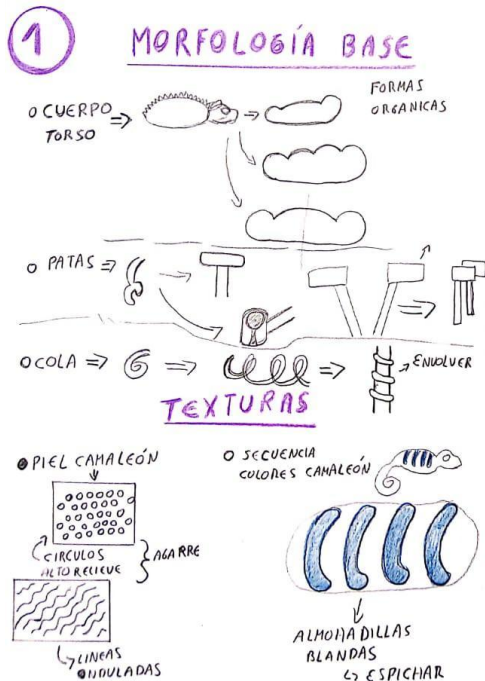 1
MORFOLOGÍA BASE
O CUERPO
TORSO
FORMAS
ORGANICAS
O PATAS
O COLA
ENVOLVER
TEXTURAS
PIEL CAMALEÓN
CIRCULOS
ALTO RELIEVE
AGARRE
LINEAS
ONDULADAS
O SECUENCIA
COLORES CAMALEÓN
ALMOHADILLAS
BLANDAS
ESPICHAR